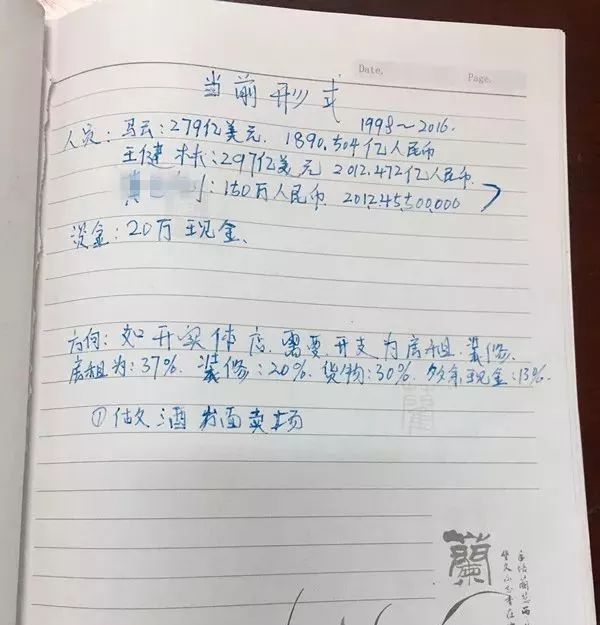 Date.
Page.
当前形式
1998～2016.
人员：马云：279亿美元. 1890.504亿人民币
王健林：297亿美元 2012.472亿人民币.
：150万人民币. 2012.45500,000
资金：20万现金、
方向：如开实体店.需要.开支为房租.装修.
房租为：37%. 装修：20%. 货物：30%. 多余现金：13%.
①做酒方面卖场
蘭
蘭